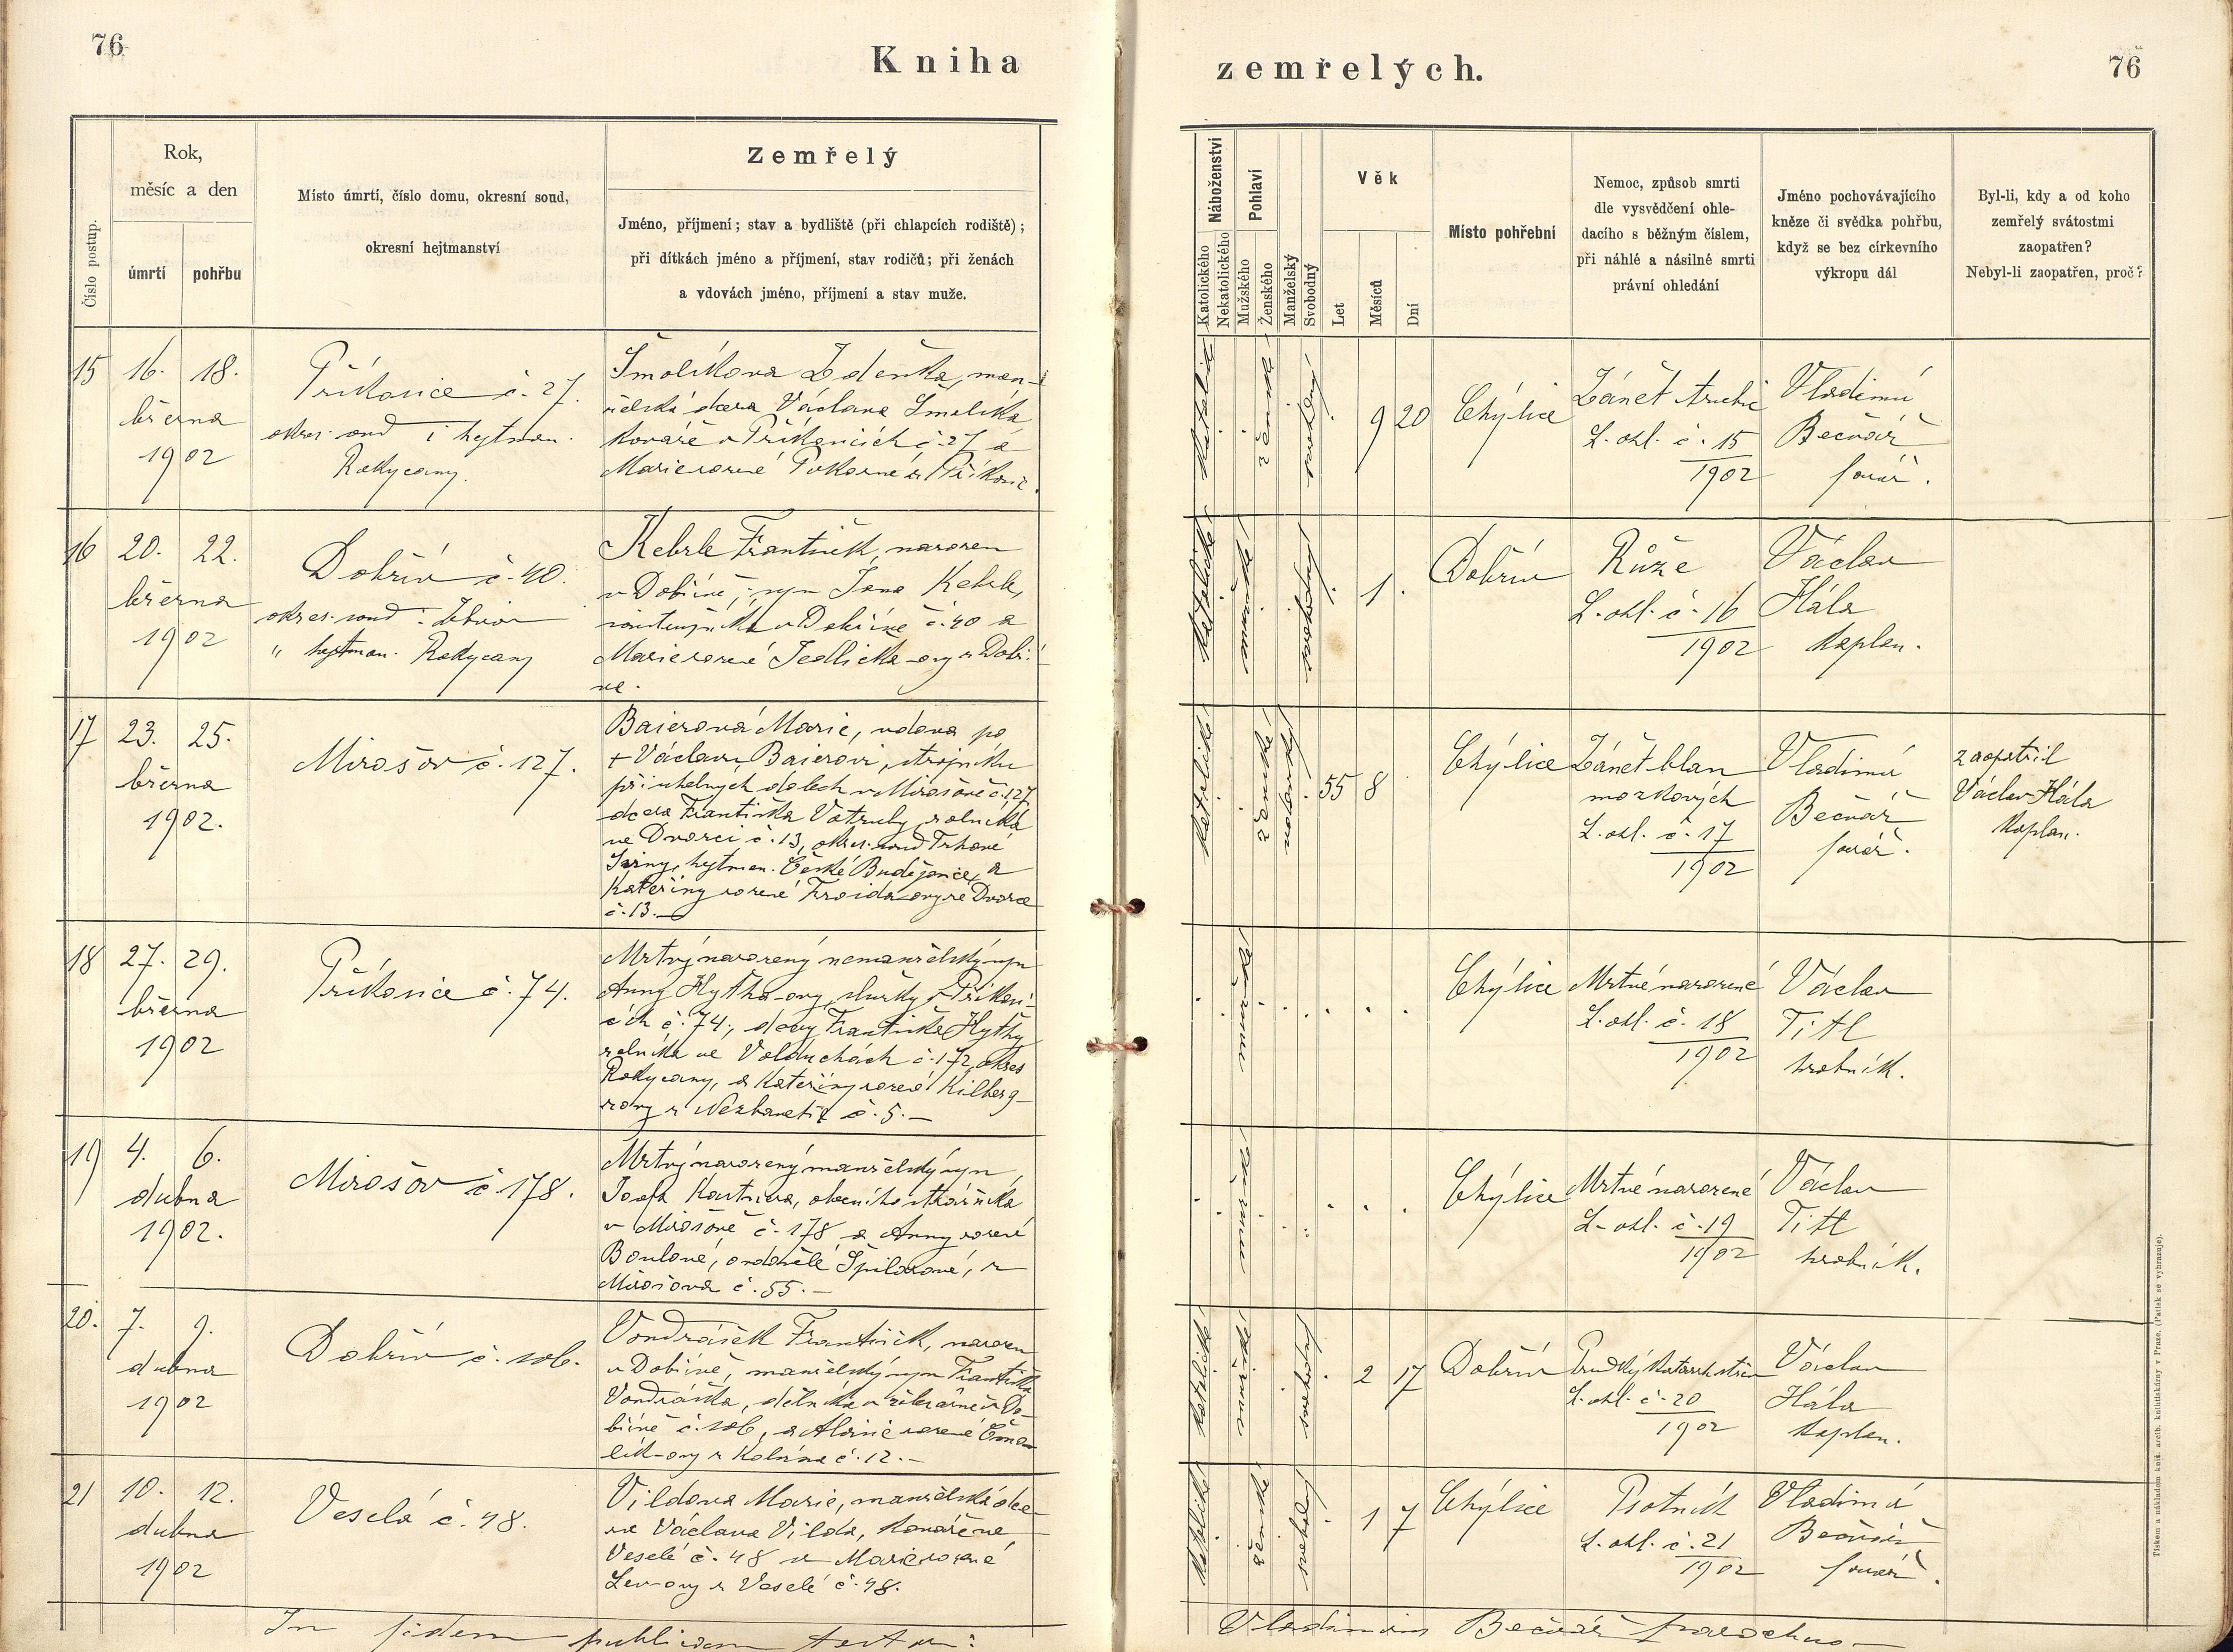 76
Kniha
zemřelých.
76
Číslo postup.
Rok,
měsíc a den
úmrtí
pohřbu
Místo úmrtí, číslo domu, okresní soud,
okresní hejtmanství
Zemřelý
Jméno, příjmení; stav a bydliště (při chlapcích rodiště);
při dítkách jméno a příjmení, stav rodičů; při ženách
a vdovách jméno, příjmení a stav muže.
Náboženství
Katolického
Nekatolického
Pohlaví
Mužského
Ženského
Manželský
Svobodný
Věk
Let
Měsíců
Dní
Místo pohřební
Nemoc, způsob smrti
dle vysvědčení ohle-
dacího s běžným číslem,
při náhlé a násilné smrti
právní ohledání
Jméno pochovávajícího
kněze či svědka pohřbu,
když se bez církevního
výkropu dál
Byl-li, kdy a od koho
zemřelý svátostmi
zaopatřen?
Nebyl-li zaopatřen, proč?
15
16. 18.
března
1902
Příkosice č. 27.
okres. soud i hejtman.
Rokycany.
Šmolíkova Zdeňka, man-
želská dcera Václava Šmolíka
kováře v Příkosicích č. 27 a
Marie rozené Pokorné z Příkosic.
katolické
ženské
svobodný
9 20
Chýlice
Zánět
L. ohl. č. 15
1902
Vladimír
Bečvář
farář.
16
20. 22.
března
1902
Dobřív č. 40.
okres. soud : Zbirov
" hejtman. Rokycany
Kebrle František, narozen
v Dobřívě, syn Jana Kebrle,
v Dobřívě č. 40 a
Marie rozené Jedlička-ovy z Dobří-
va.
katolické
mužské
svobodný
1
Dobřív
Růže
L. ohl. č. 16
1902
Václav
Hála
kaplan.
17
23. 25.
března
1902.
Mirošov č. 127.
Baierová Marie, vdova po
+ Václavu Baierovi, strojníku
při uhelných dolech v Mirošově č. 127
dcera Františka Votruby, rolníka
ve Dvorci č. 13, okres. soud Trhové
Sviny, hejtman. České Budějovice, a
Kateřiny rozené ze Dvorce
č. 13.
katolické
ženské
55 8
Chýlice
Zánět blan
mozkových
L. ohl. č. 17
1902
Vladimír
Bečvář
farář.
zaopatřil
Václav Hála
kaplan.
18
27. 29.
března
1902
Příkosice č. 74.
Mrtvý narozený nemanželský syn
Anny Hytha-ovy, služky v Příkosi-
cích č. 74, dcery Františka Hythy
rolníka ve Volduchách č. 172, okres
Rokycany, a Kateřiny rozené Kilberg-
rovy z č. 5. —
mužské
Chýlice
Mrtvě narozené
L. ohl. č. 18
1902
Václav
Titl
hrobník.
19
4. 6.
dubna
1902.
Mirošov č. 178.
Mrtvý narozený manželský syn
Josefa obecního strážníka
v Mirošově č. 178 a Anny rozené
ovdovělé Špilarové, z
Mirošova č. 55. —
mužské
Chýlice
Mrtvě narozené
L. ohl. č. 19
1902
Václav
Titl
hrobník.
20.
7. 9.
dubna
1902
Dobřív č. 106.
Vondrášek František, narozen
v Dobřívě, manželský syn Františka
Vondráška, dělníka v Do-
břívě č. 106, a Aloisie rozené
lík-ovy z č. 12. —
katolické
mužské
svobodný
2 17
Dobřív
Prudký katarrh střev
L. ohl. č. 20
1902
Václav
Hála
kaplan.
21
10. 12.
dubna
1902
Veselá č. 48.
Vildova Marie, manželská dce-
ra Václava Vilda, kováře ve
Veselé č. 48 a Marie rozené
Lev-ovy z Veselé č. 48.
katolické
ženské
svobodný
1 7
Chýlice
Psotník
L. ohl. č. 21
1902
Vladimír
Bečvář
farář.
In fidem publicam testor:
Vladimirus Bečvář parochus
Tiskem a nákladem kníž. arcib. knihtiskárny v Praze. (Patisk se vyhrazuje).